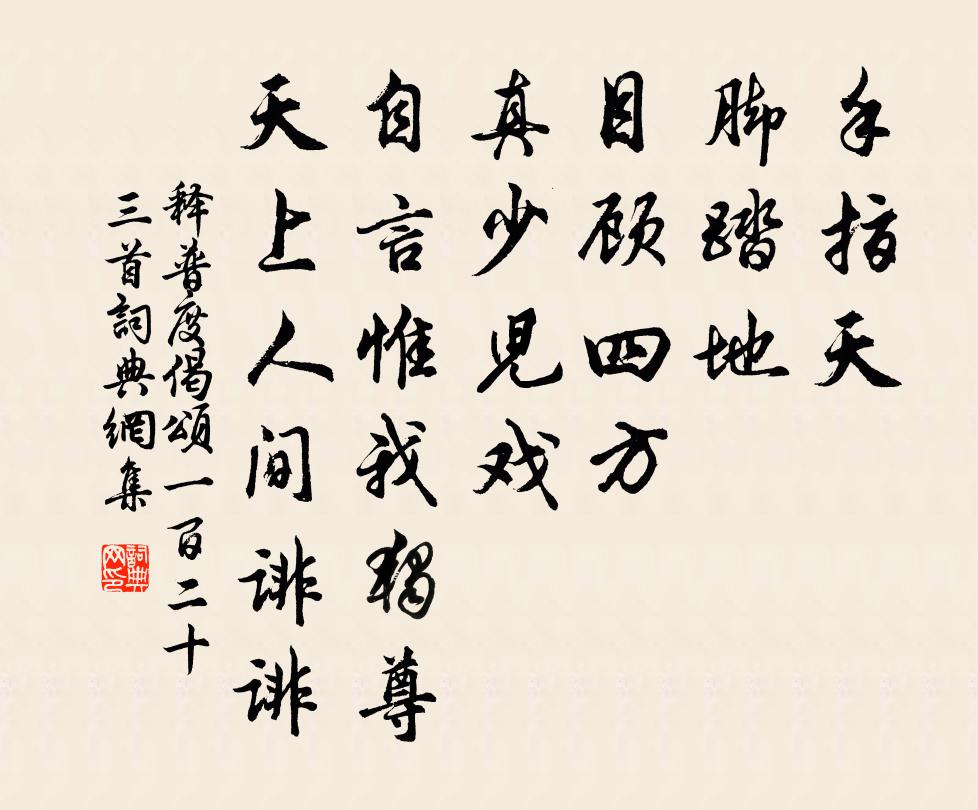 手指天
脚踏地
目顾四方
真少儿戏
自言惟我独尊
天上人间诽诽
释普度偈颂一百二十
三首詞典網集
詞典网印